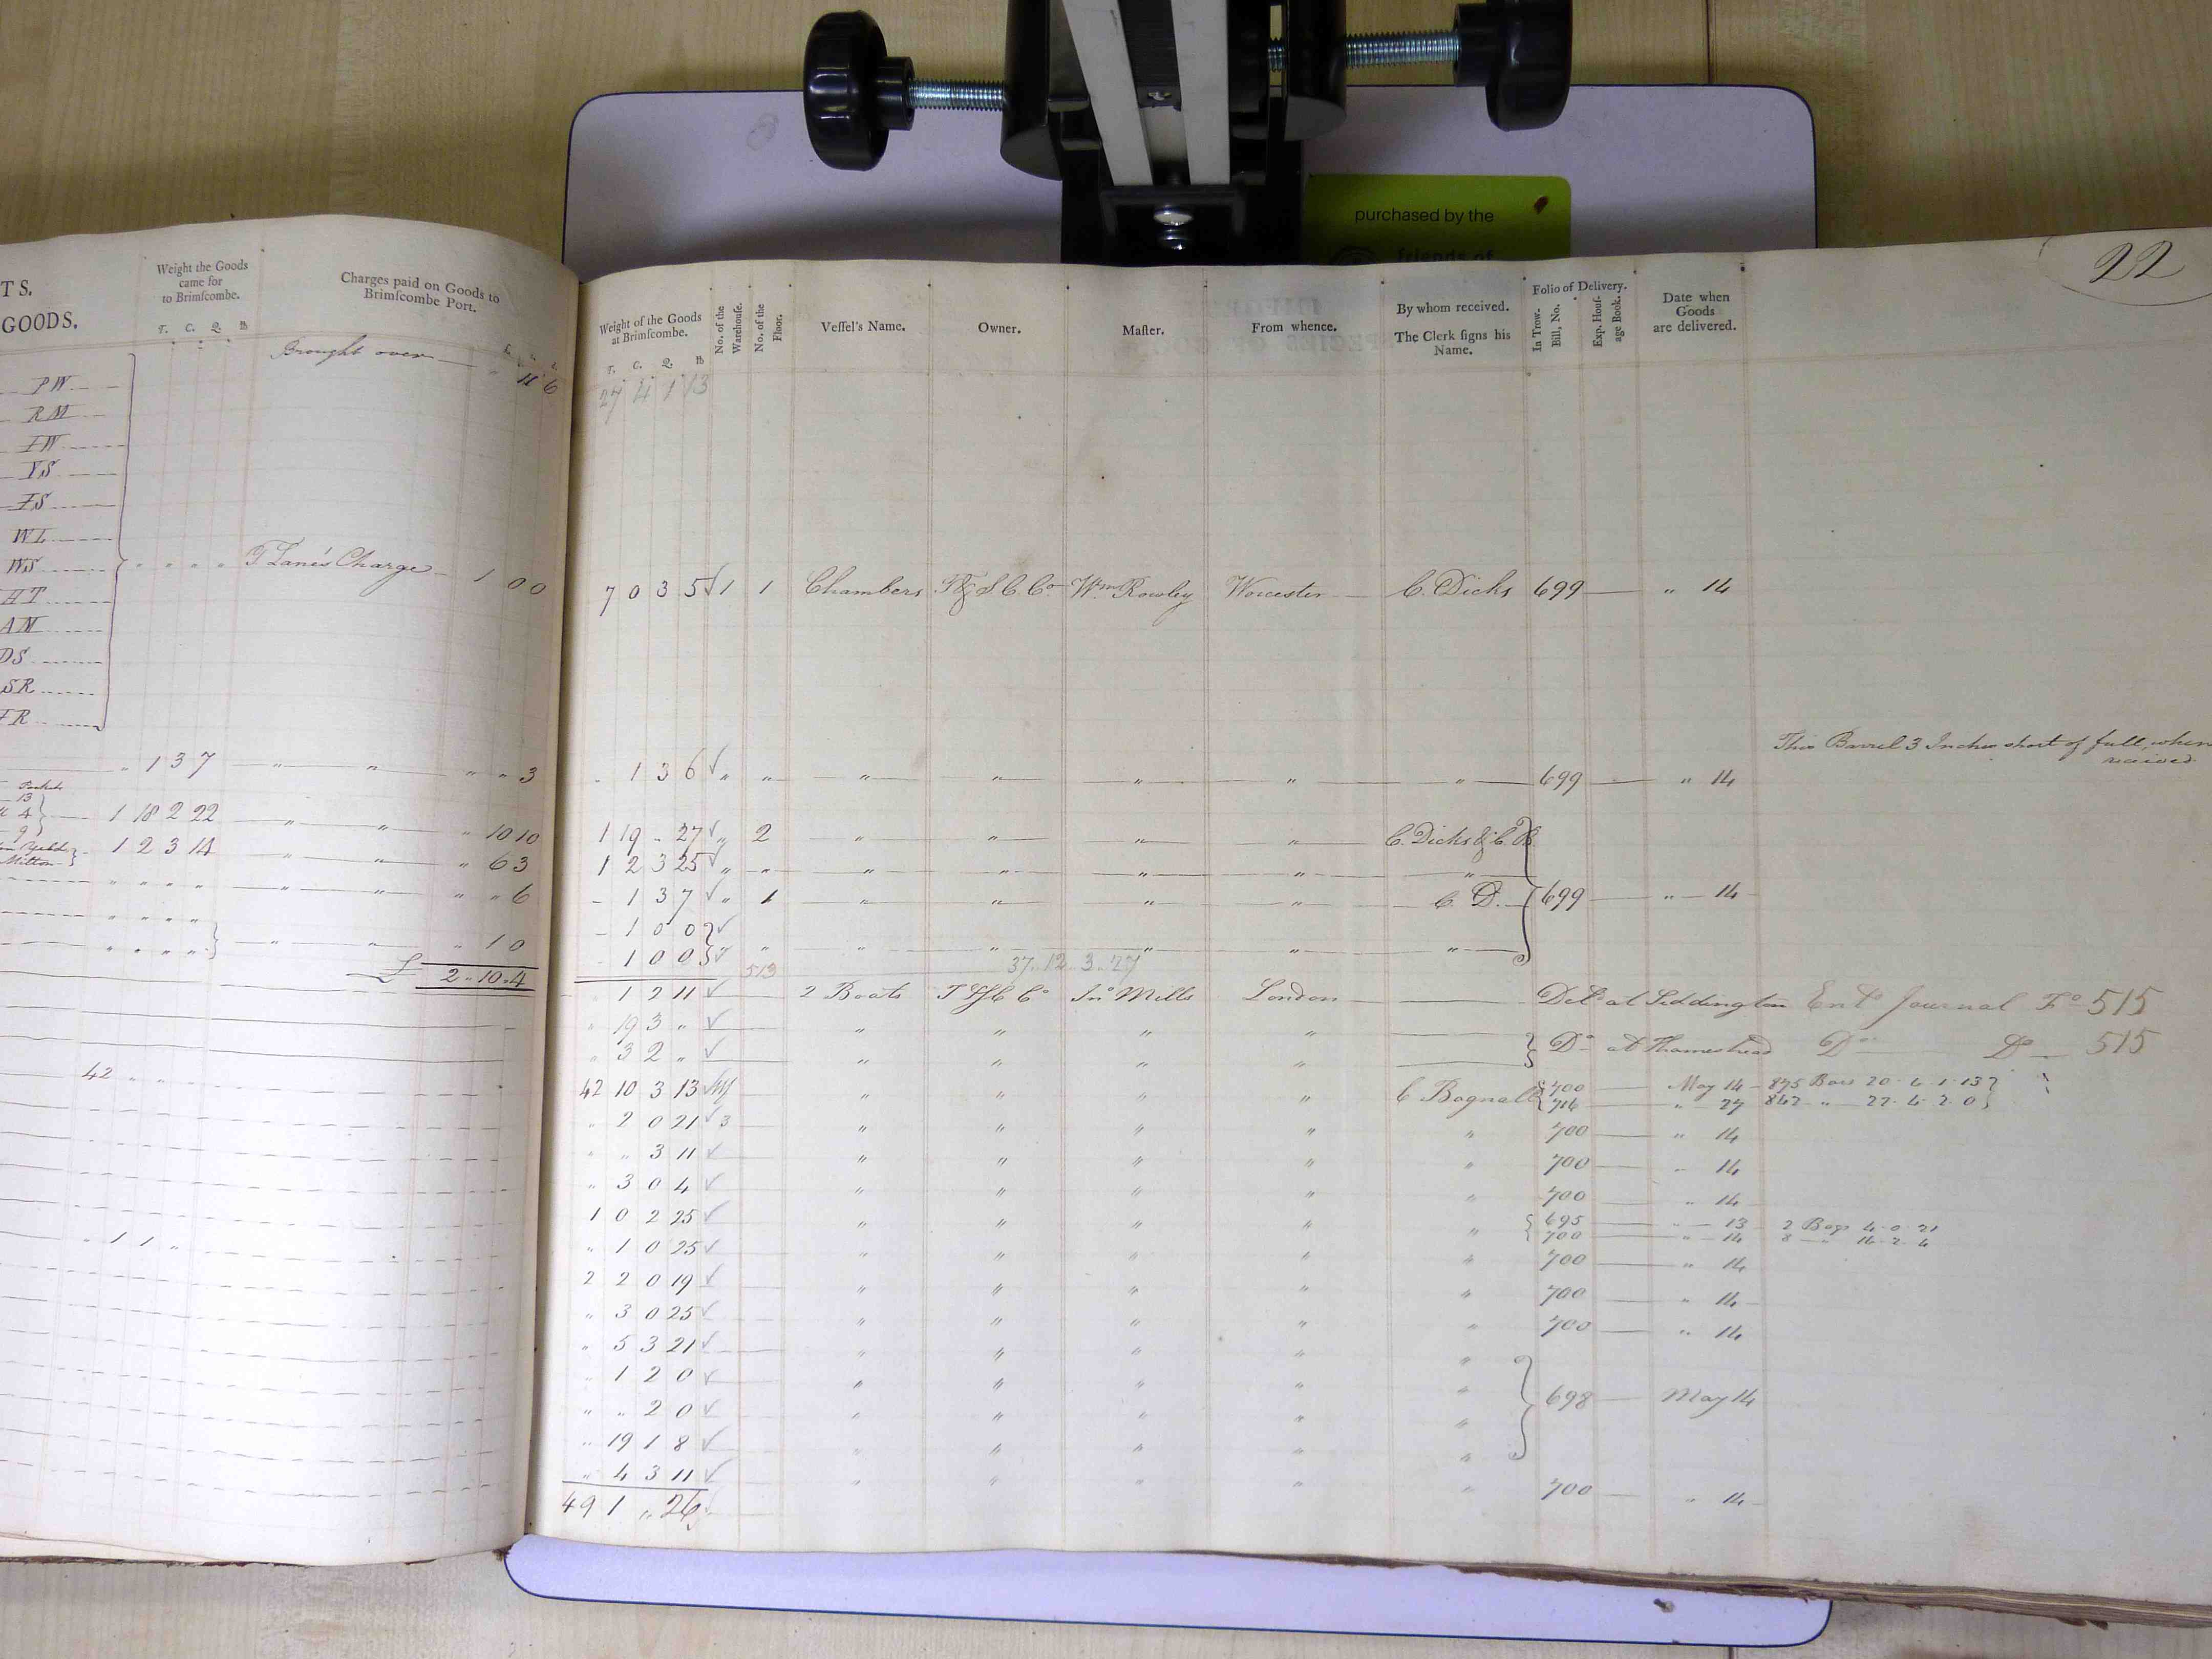 purchased by the
friends of
22
TS.
GOODS.
Weight the Goods
came for
to Brimſcombe.
T. C. Q. lb
Charges paid on Goods to
Brimſcombe Port.
Brought over 11 6
PW
RM
IW
YS
IS
WL
WS " " " " T Lane's Charge 1 0 0
HT
AM
DS
SR
FR
" 1 3 7 " " " " 3
Pockets
13
4 } 1 18 2 22 " " " 10 10
9
Milton } 1 2 3 14 " " " 6 3
" " " " " " " " 6
" " " "
" " " " } " " " 1 0
£ 2 .. 10 .. 4
42 " "
" 1 1 "
Weight of the Goods
at Brimſcombe.
T. C. Q. lb
No. of the
Warehouse.
No. of the
Floor.
Veſſel's Name.
Owner.
Maſter.
From whence.
By whom received.
The Clerk ſigns his
Name.
Folio of Delivery.
In Trow.
Bill, No.
Exp. Houſ-
age Book.
Date when
Goods
are delivered.
27 4 1 13
7 0 3 5 √ 1 1 Chambers T & S C Co Wm Rowley Worcester C. Dicks 699 " 14
This Barrel 3 Inches short of full, when
received
" 1 3 6 √ " " " " " " " 699 " 14
1 19 " 27 √ " 2 " " " " C. Dicks & C. B.
1 2 3 25 √ " " " " " " "
- 1 3 7 √ " 1 " " " " C. D. 699 " 14
- 1 0 0 } √
- 1 0 0 } √ " " " " " " "
513 37 .. 12 .. 3 .. 27
" 1 2 11 √ 2 Boats T & S C Co Jno Mills London Deld at Siddington Entd Journal Fo 515
" 19 3 " √ " " " "
" 3 2 " √ " " " " } Do at Thameshead Do Do 515
42 10 3 13 √ " " " " C Bagnall { 700 May 14 - 875 Bars 20 . 6 . 1 . 13 }
{ 716 " 27 842 " 22 . 4 . 2 . 0 }
" 2 0 21 √ 3 " " " " " 700 " 14
" " 3 11 √ " " " " " 700 " 14
" 3 0 4 √ " " " " " 700 " 14
1 0 2 25 √ " " " " " { 695 " 13 2 Bags 4 . 0 . 21
{ 700 " 14 8 " 16 . 2 . 4
" 1 0 25 √ " " " " " 700 " 14
2 2 0 19 √ " " " " " 700 " 14
" 3 0 25 √ " " " " " 700 " 14
" 5 3 21 √ " " " " "
" 1 2 0 √ " " " " " } 698 May 14
" " 2 0 √ " " " " "
" 19 1 8 √ " " " " "
" 4 3 11 √ " " " " " 700 " 14
49 1 " 26